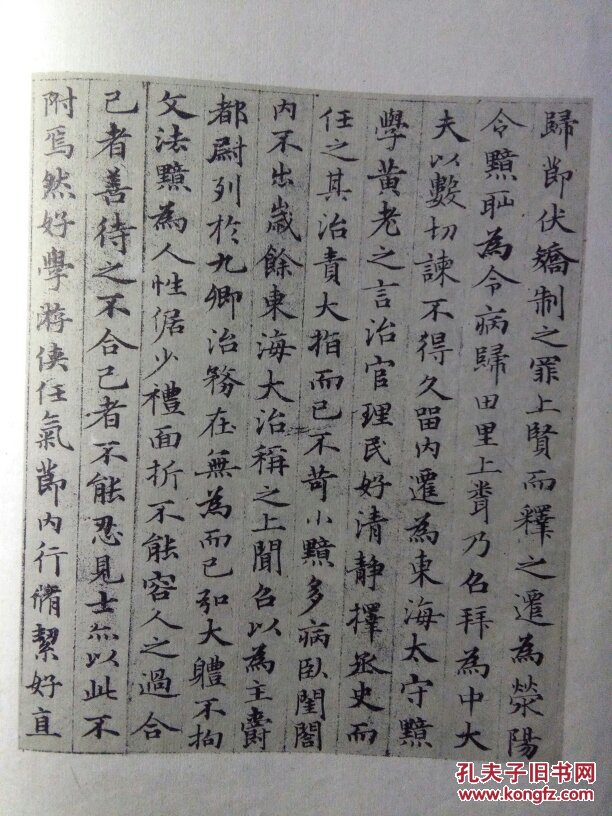 歸節伏矯制之罪上賢而釋之遷為滎陽
令黯恥為令病歸田里上聞乃召拜為中大
夫以數切諫不得久留內遷為東海太守黯
學黃老之言治官理民好清靜擇丞史而
任之其治責大指而已不苛小黯多病臥閨閣
內不出歲餘東海大治稱之上聞召以為主爵
都尉列於九卿治務在無為而已弘大體不拘
文法黯為人性倨少禮面折不能容人之過合
己者善待之不合己者不能忍見士亦以此不
附焉然好學游俠任氣節內行脩絜好直
孔夫子旧书网
www.kongfz.com